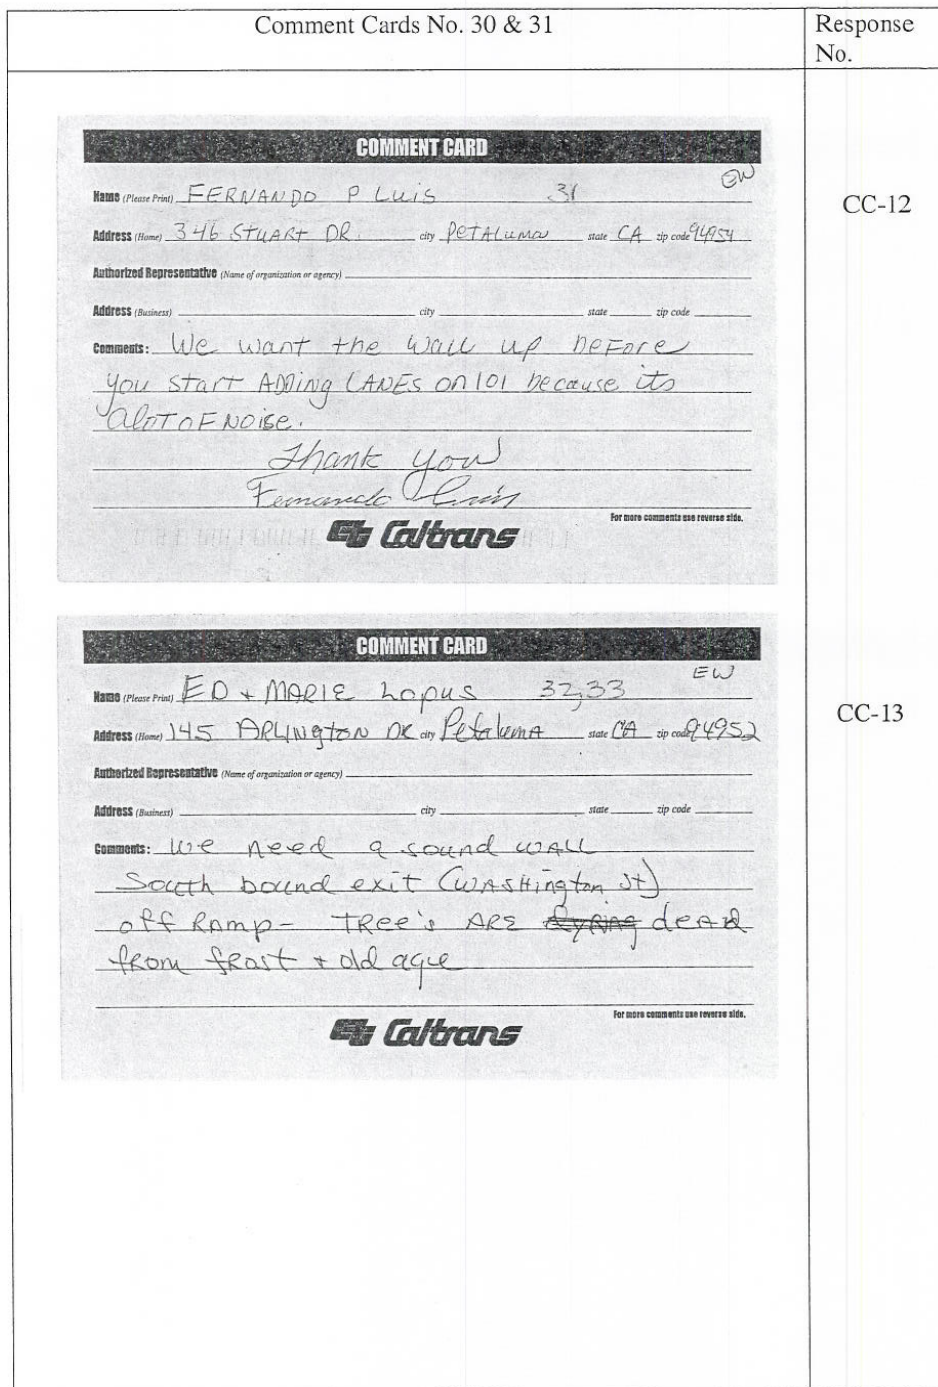 Comment Cards No. 30 & 31
Response
No.
COMMENT CARD
EW
Name (Please Print) FERNANDO P LUIS 31
Address (Home) 346 STUART DR. city PETALUMA state CA zip code 94954
Authorized Representative (Name of organization or agency)
Address (Business) city state zip code
Comments: We want the wall up beFore
you start ADDing LANES on 101 because its
alOTOFNOISE.
Thank you
Fernando Luis
For more comments use reverse side.
Caltrans
CC-12
COMMENT CARD
EW
Name (Please Print) ED + MARIE Lopus 32,33
Address (Home) 145 ARLINgtoN DR city PetalumA state CA zip code 94952
Authorized Representative (Name of organization or agency)
Address (Business) city state zip code
Comments: We need a sound WALL
South bound exit (WASHington St)
off RAmp - TRee's ARE dyRing deAd
from fRost + old age
For more comments use reverse side.
Caltrans
CC-13